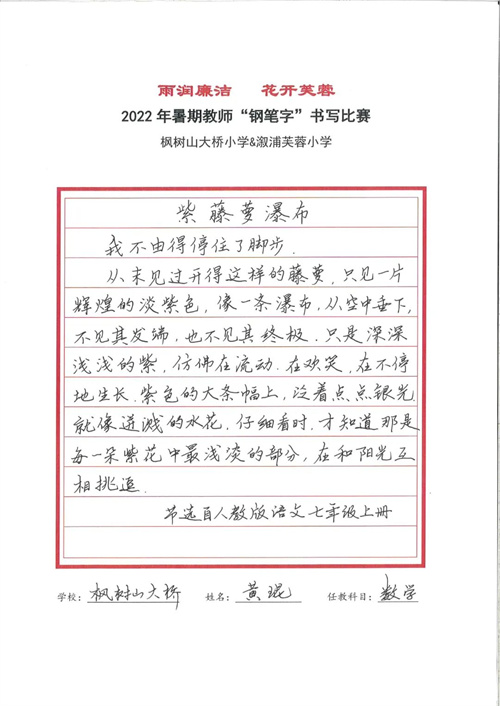 雨润廉洁 花开芙蓉
2022年暑期教师“钢笔字”书写比赛
枫树山大桥小学&溆浦芙蓉小学
紫藤萝瀑布
我不由得停住了脚步.
从未见过开得这样的藤萝,只见一片
辉煌的淡紫色,像一条瀑布,从空中垂下,
不见其发端,也不见其终极.只是深深
浅浅的紫,仿佛在流动.在欢笑,在不停
地生长.紫色的大条幅上,泛着点点银光
就像迸溅的水花.仔细看时.才知道那是
每一朵紫花中最浅淡的部分,在和阳光互
相挑逗.
节选自人教版语文七年级上册
学校:枫树山大桥 姓名:黄琨 任教科目:数学